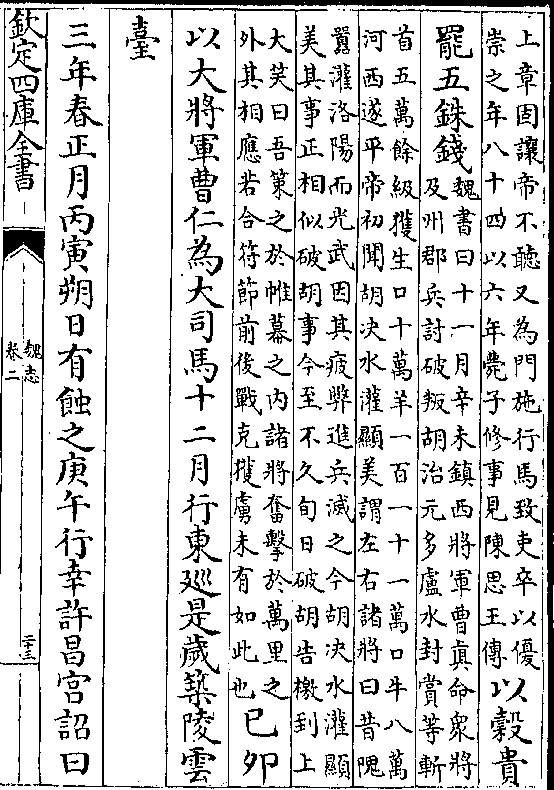 上章固讓帝不聽又為門施行馬致吏卒以優
崇之年八十四以六年薨子修事見陳思王傳
以穀貴
罷五銖錢
魏書曰十一月辛未鎮西將軍曹真命衆將
及州郡兵討破叛胡治元多盧水封賞等斬
首五萬餘級獲生口十萬羊一百一十一萬口牛八萬
河西遂平帝初聞胡决水灌顯美謂左右諸將曰昔隗
囂灌洛陽而光武因其疲弊進兵滅之今胡决水灌顯
美其事正相似破胡事今至不久旬日破胡告檄到上
大笑曰吾策之於帷幕之内諸將奮擊於萬里之
外其相應若合符節前後戰克獲虜未有如此也
己卯
以大將軍曹仁為大司馬十二月行東廵是歲築陵雲
臺
三年春正月丙寅朔日有蝕之庚午行幸許昌宫詔曰
欽定四庫全書
魏志
卷二
二十三